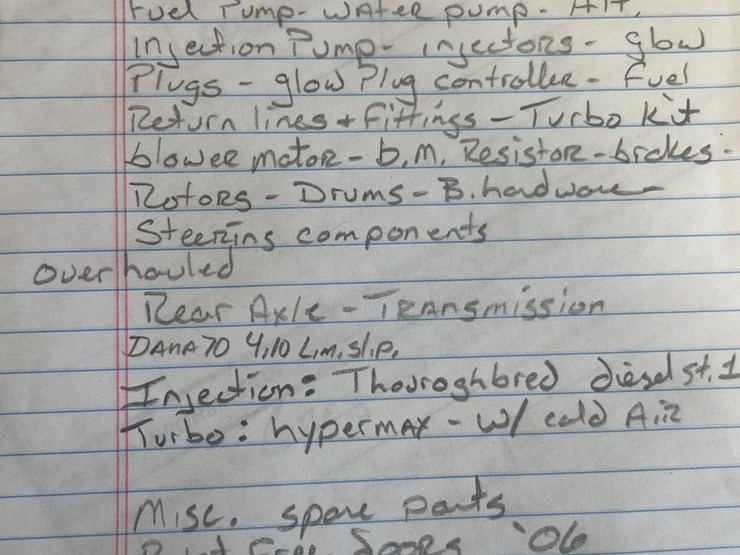 Fuel Pump - Water pump - Alt,
Injection Pump - injectors - glow
Plugs - glow Plug controller - Fuel
Return lines + fittings - Turbo kit
blower motor - b.m. Resistor - brakes -
Rotors - Drums - B. hardware
Steering components
Overhauled
Rear Axle - Transmission
DANA 70 4,10 Lim. Slip.
Injection: Thouroghbred diesel st. 1
Turbo: hypermax - w/ cold Air
Misc. spare parts
Free Doors '06